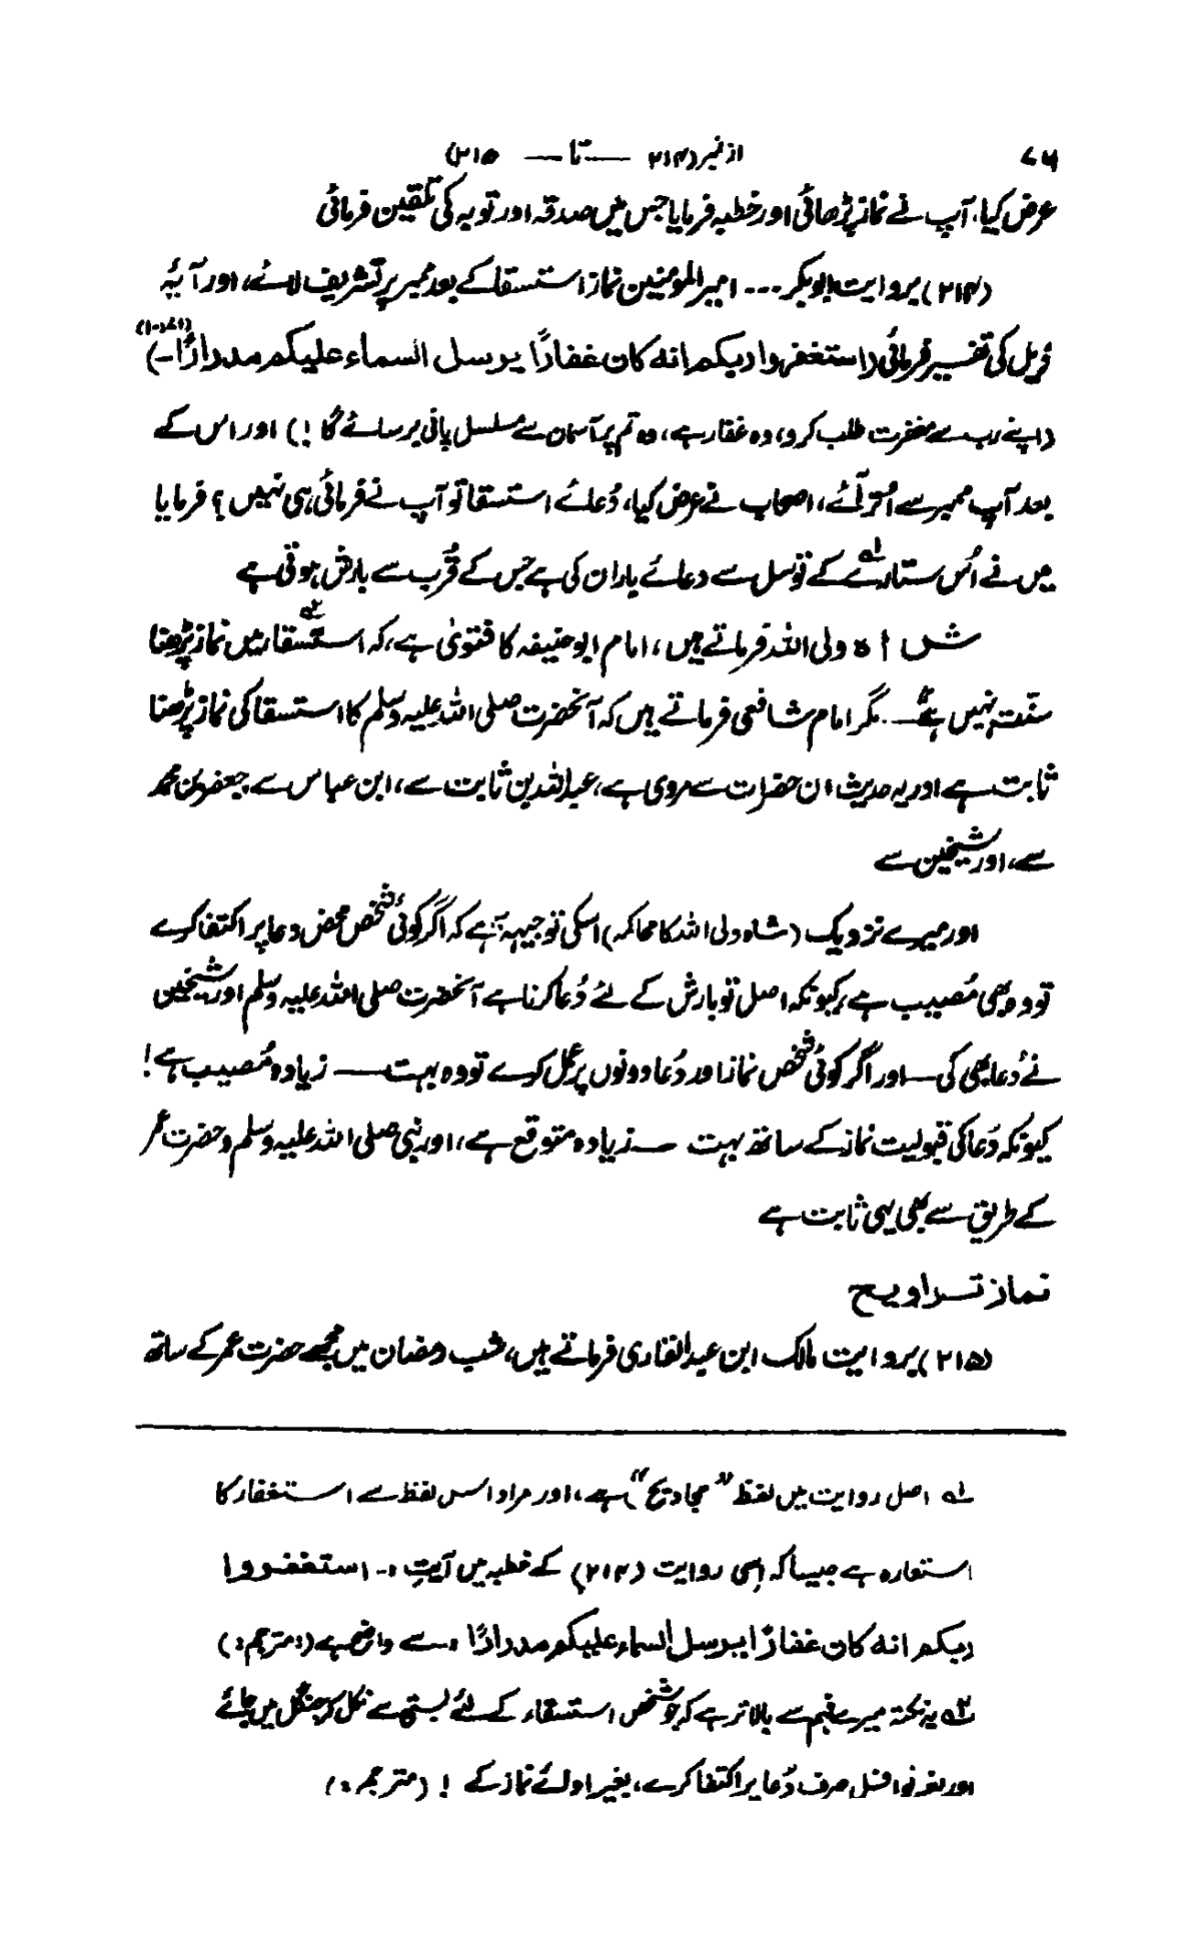 ۷۶ از نمبر (۲۱۴ — تا — ۲۱۵)
عرض کیا، آپ نے نماز پڑھائی اور خطبہ فرمایا جس میں صدقہ اور توبہ کی تلقین فرمائی
(۲۱۴) بروایت ابوبکر ... امیر المومنین نماز استسقا کے بعد ممبر پر تشریف لائے، اور آیہ
ذیل کی تفسیر فرمائی (استغفروا ربکم انه کان غفارًا یرسل السماء علیکم مدرارًا۔) (۱۰:۷۱)
(اپنے رب سے مغفرت طلب کرو، وہ غفار ہے، وہ تم پر آسمان سے مسلسل پانی برسائے گا!) اور اس کے
بعد آپ ممبر سے اُتر آئے، اصحاب نے عرض کیا، دُعائے استسقا تو آپ نے فرمائی ہی نہیں؟ فرمایا
میں نے اُس ستارے لہ کے توسل سے دعائے باران کی ہے جس کے قُرب سے بارش ہوتی ہے
شاہ ولی اللہ فرماتے ہیں، امام ابوحنیفہ کا فتویٰ ہے، کہ استسقا میں نماز پڑھنا
سنّت نہیں ہے ۔۔ مگر امام شافعی فرماتے ہیں کہ آنحضرت صلی اللہ علیہ وسلم کا استسقا کی نماز پڑھنا
ثابت ہے اور یہ حدیث ان حضرات سے مروی ہے، عبداللہ بن ثابت سے، ابن عباس سے جعفر بن محمد
سے، اور شیخین سے
اور میرے نزدیک (شاہ ولی اللہ کا محاکمہ) اسکی توجیہہ یہ ہے کہ اگر کوئی شخص محض دعا پر اکتفا کرے
تو وہ بھی مُصیب ہے کیونکہ اصل تو بارش کے لئے دُعا کرنا ہے آنحضرت صلی اللہ علیہ وسلم اور شیخین
نے دُعا بھی کی — اور اگر کوئی شخص نماز اور دُعا دونوں پر عمل کرے تو وہ بہت — زیادہ مُصیب ہے!
کیونکہ دُعا کی قبولیت نماز کے ساتھ بہت — زیادہ متوقع ہے، اور نبی صلی اللہ علیہ وسلم و حضرت عمر
کے طریق سے بھی یہی ثابت ہے
نماز تراویح
(۲۱۵) بروایت مالک ابن عبدالقاری فرماتے ہیں، شب رمضان میں مجھے حضرت عمر کے ساتھ
لہ اصل روایت میں لفظ "مجادیح" ہے، اور مراد اس لفظ سے استغفار کا
استعارہ ہے جیسا کہ اِسی روایت (۲۱۴) کے خطبہ میں آیتِ :۔ استغفروا
ربکم انه کان غفارًا یرسل السماء علیکم مدرارًا :۔ سے واضح ہے (:مترجم:)
۲ہ یہ نکتہ میرے فہم سے بالاتر ہے کہ جو شخص استسقاء کے لئے بستی سے نکل کر جنگل میں جائے
اور صرف دُعا پر اکتفا کرے، بغیر اولئے نماز کے ! (مترجم:)